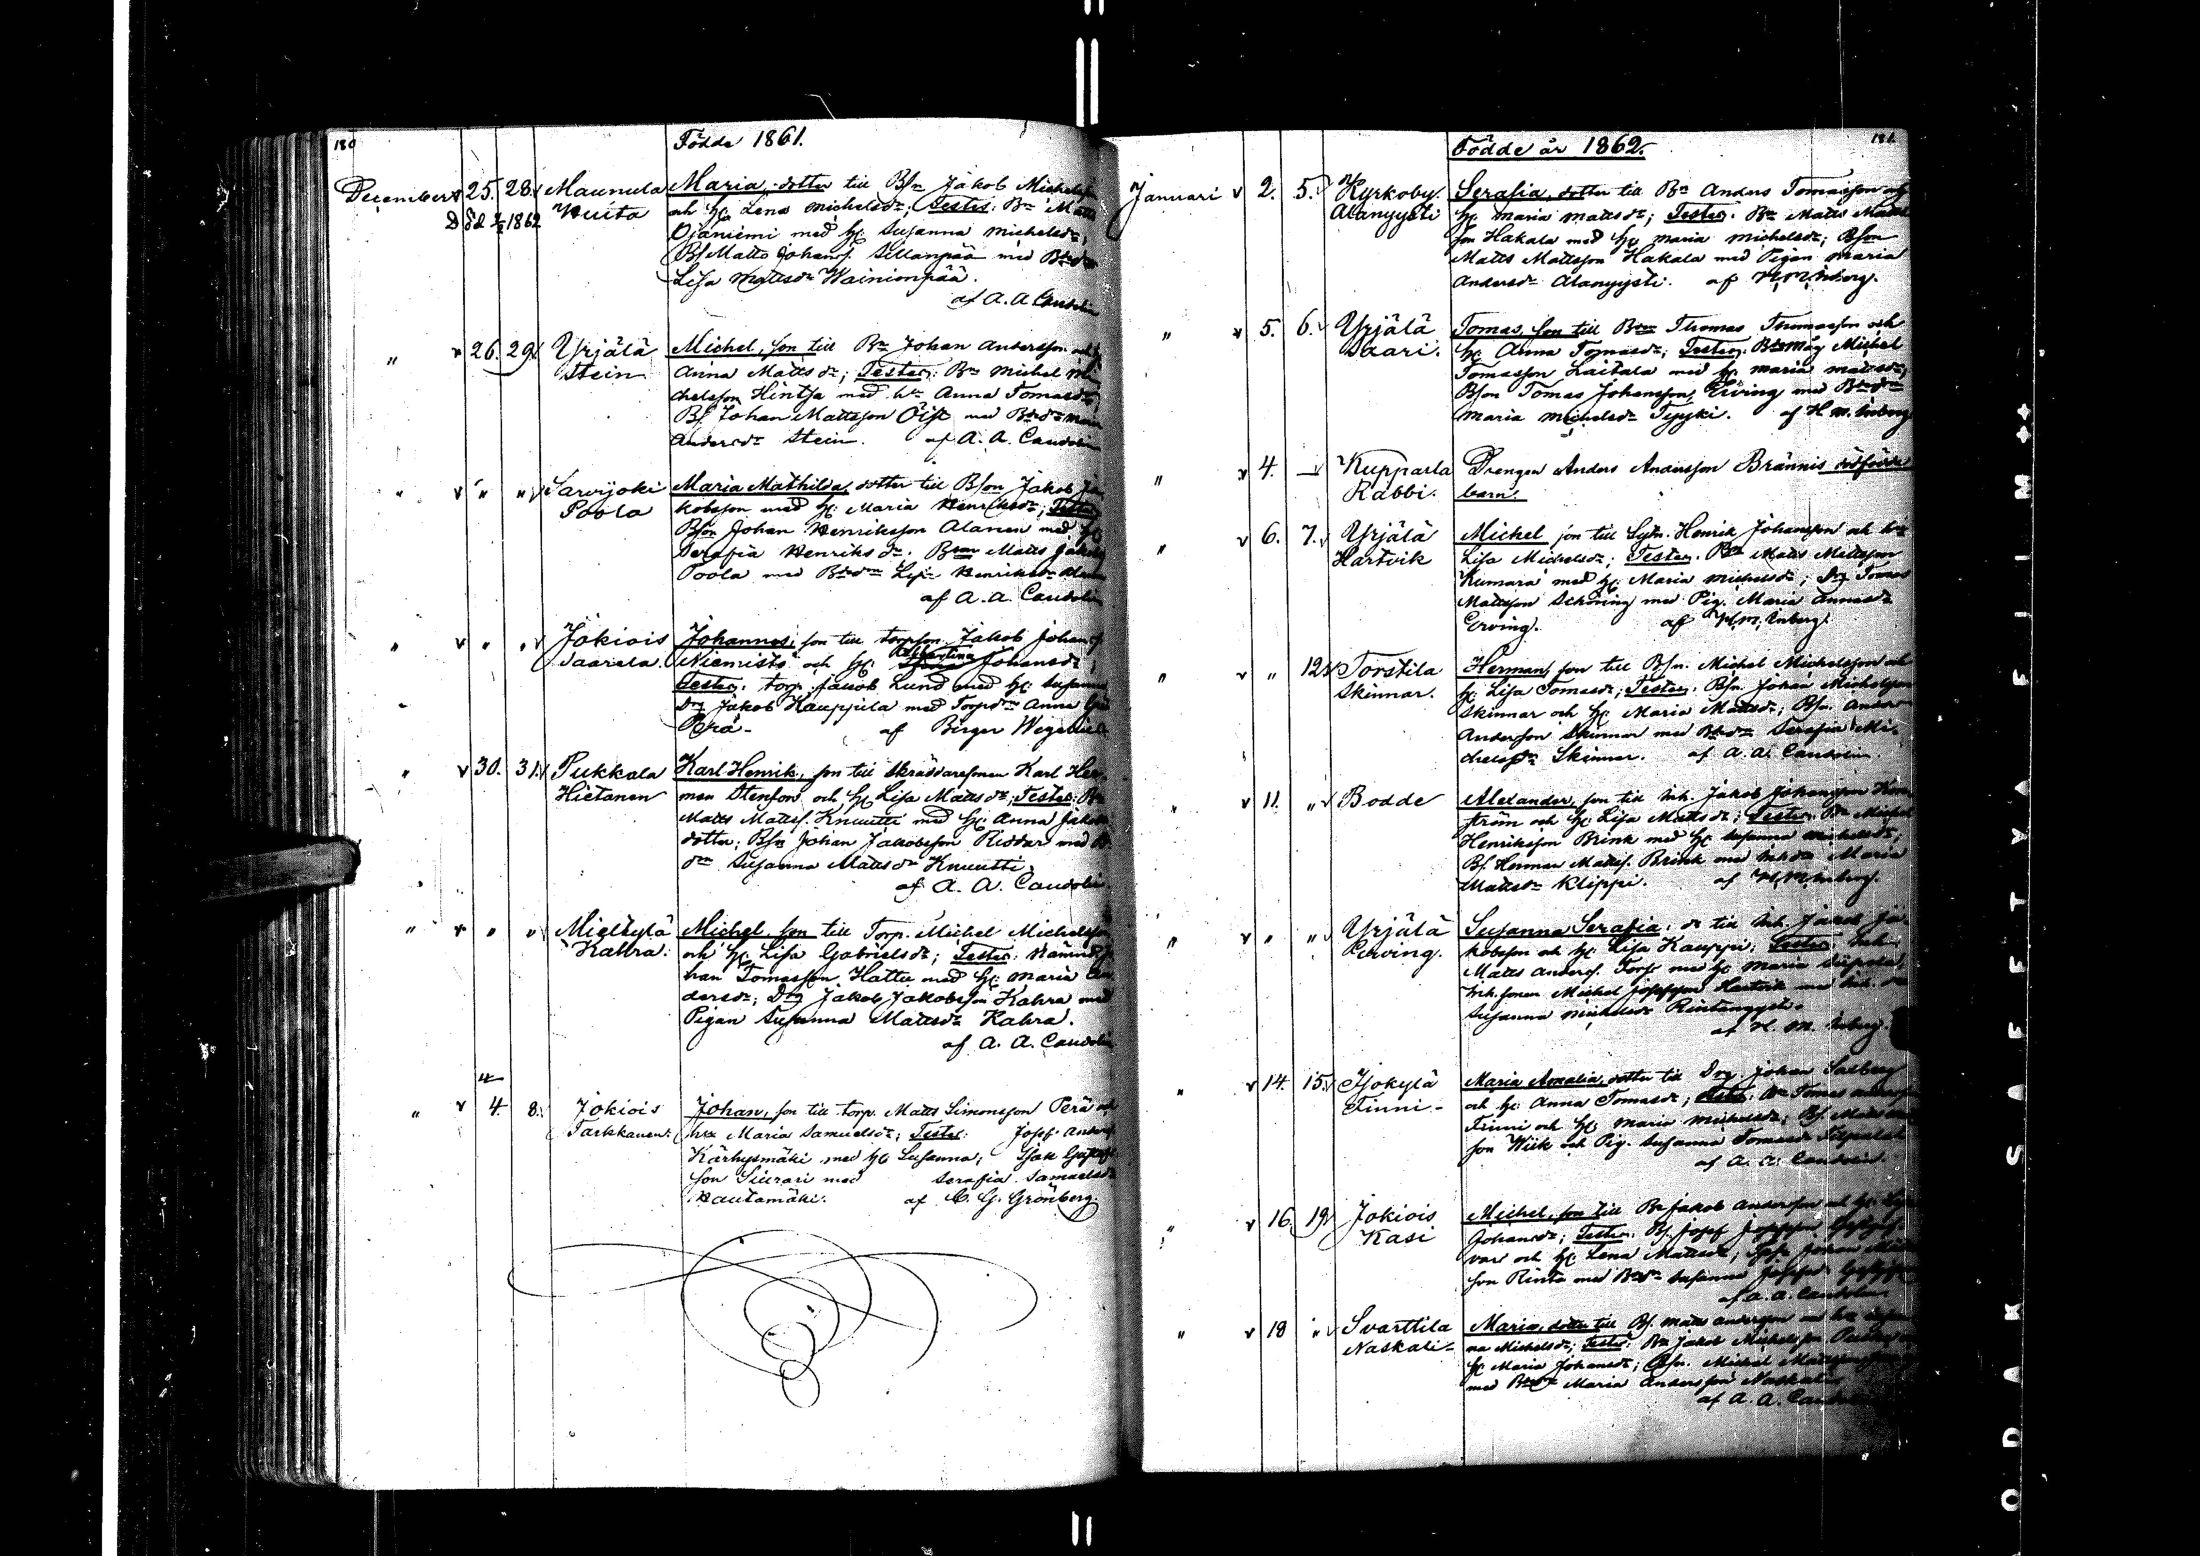 180
Födde 1861.
December 25. 28. Maunula Maria, dotter till Bn Jakob Michelsson
Död 1862 Huita och h. Lena Michelsdr; Testes: Bn Matts
Ojaniemi med h. Susanna Michelsdr,
Bs Matts Johans. Sillanpää med
Lisa Mattsdr Wainionpää.
af A. A. Candolin
" 26. 29. Yrjälä Michel, son till Bn Johan Andersson och h.
Stein Anna Mattsdr; Testes: Bn Michel Mi
chelsson Hintsa med h. Anna Tomasdr,
Bs. Johan Mattsson Öist med
Andersdr Stein. af A. A. Candolin
" " " Sarvijoki Maria Mathilda, dotter till Bson Jakob Ja
Poola kobsson med h. Maria Henriksdr; Testes
Bson Johan Henriksson Alanen med h.
Serafia Henriksdr. Matts Jakobs
Poola med Lisa Henriksdr
af A. A. Candolin
" " " Jokiois Johannes, son till torpson Jakob Johans
Saarela. Niemistö och h. Albertina Johansdr,
Testes: torp. Jakob Lund med h. Susanna
Drg Jakob Kauppila med Torpdr Anna
Perä. af Birger Wegelius
" 30. 31. Pukkala Karl Henrik, son till Skräddaresonen Karl Her
Hietanen man Stenfors och h. Lisa Mattsdr; Testes: Bn
Matts Matts. Knuutti med h. Anna Jakobs
dotter; Bsn Johan Jakobsson Riddar med B
dr Susanna Mattsdr Knuutti
af A. A. Candolin.
" " " Mieltylä Michel, son till Torp. Michel Michelsson
Kahra. och h. Lisa Gabrielsdr; Testes: Nämnd. Jo
han Tomasson Hattu med h. Maria An
dersdr; Drg Jakob Jakobsson Kahra med
Pigan Susanna Mattsdr Kahra.
af A. A. Candolin
4
" 4 8. Jokiois Johan, son till torp. Matts Simonsson Perä och
Tarkkanen. h. Maria Samuelsdr; Testes: Josef Anders
Kärhysmäki med h. Susanna; Isak Gustafs
son Siurari med Serafia Samuelsdr
Hautamäki. af C. G. Grönberg.
181
Födde år 1862.
Januari 2. 5. Kyrkoby. Serafia, dotter till Bn Anders Tomasson och
Alanyysti h. Maria Mattsdr; Testes: Bn Matts Matts
son Hakala med h. Maria Michelsdr; Bson
Matts Mattsson Hakala med Pigan Maria
Andersdr Alanyysti. af H. M. Inberg.
" 5. 6. Yrjälä Tomas, son till Thomas Thomasson och
Saari. h. Anna Tomasdr; Testes: Bdemåg Michel
Tomasson Laitala med h. Maria Mattsdr,
Bson Tomas Johansson Erving med
Maria Michelsdr Tyyki. af H. M. Inberg
" 4. — Kupparla Drengen Anders Andersson Brännis dödfödde
Rabbi. barn.
" 6. 7. Yrjälä Michel son till Sytn. Henrik Johansson och h.
Hartvik Lisa Michelsdr; Testes: Bn Matts Mattsson
Kumara med h. Maria Michelsdr; Drg Tomas
Mattsson Schöring med Pig. Maria
Erving. af H. M. Inberg.
" " 12 Torstila Herman, son till Bsn. Michel Michelsson och
Skinnar. h. Lisa Tomasdr; Testes: Bsn. Johan Michelsson
Skinnar och h. Maria Mattsdr; Bsn. Anders
Andersson Skinnar med Serafia Mi
chelsdr Skinnar. af A. A. Candolin
" 11. " Bodde Alexander, son till Inh. Jakob Johansson
ström och h. Lisa Mattsdr; Testes: Bn Michel
Henriksson Brink med h. Susanna Michelsdr,
Bs. Herman Matts. Brink med Maria
Mattsdr Klippi. af H. M. Inberg.
" " " Yrjälä Susanna Serafia, dr till Inh. Jakob Ja
Erving. kobsson och h. Lisa Kauppi; Testes: Inh.
Matts Anders. Torse med h. Maria
Inh. sonen Michel Josefsson Hartvik med
Susanna Michelsdr
af H. M. Inberg.
" 14. 15. Ojokylä Maria Amalia, dotter till Drg. Johan Salberg
Finni och h. Anna Tomasdr; Testes: Bn Tomas
Finni och h. Maria Michelsdr; Bs. Matts
son Wiik och Pig. Susanna Tomasdr
af A. A. Candolin.
" 16. 19. Jokiois Michel, son till Bn Jakob Andersson och h.
Kasi Johansdr; Testes: Bs. Josef
var och h. Lena Mattsdr, Johan
son Rinta med Susanna
af A. A. Candolin
" 18 " Svarttila Maria, dotter till Bs. Matts Andersson och h.
Naskali na Michelsdr; Testes: Bn Jakob Michelsson
h. Maria Johansdr; Bsn. Michel
med Maria Andersson Naskali
af A. A. Candolin
KODAK SAFETY FILM